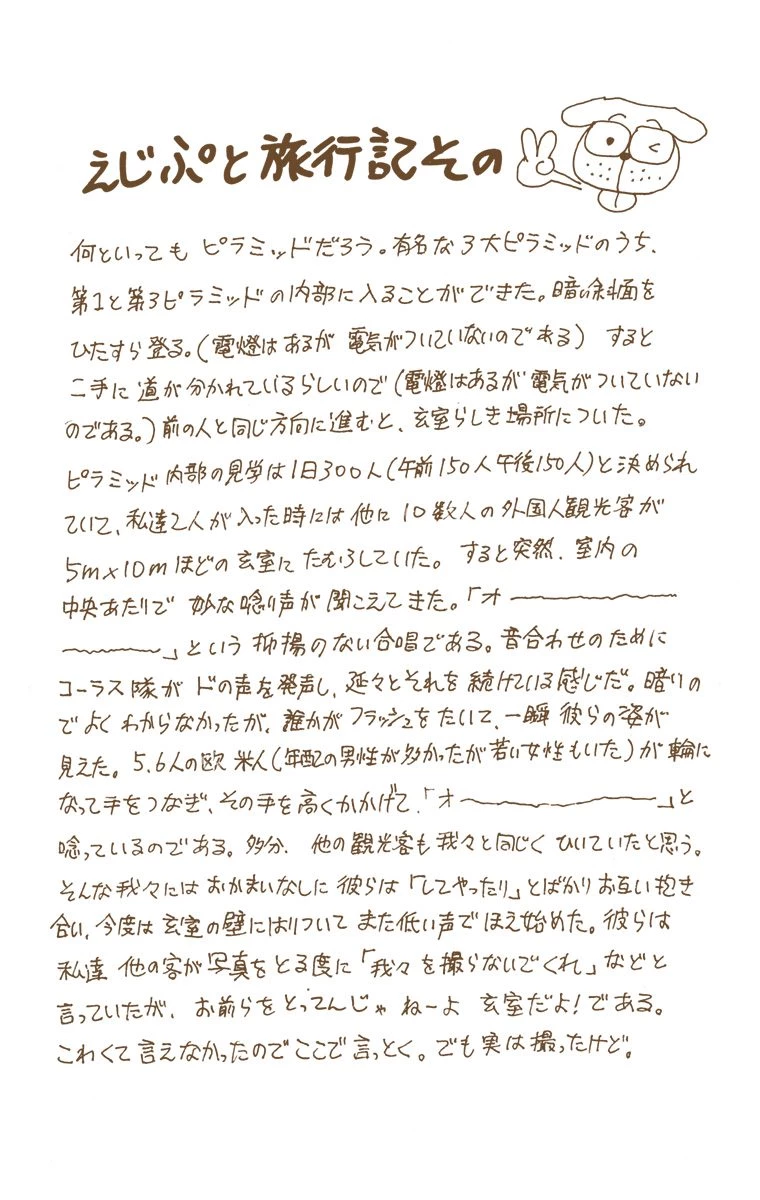 えじぷと旅行記その
何といっても ピラミッドだろう。有名な3大ピラミッドのうち、
第1と第3ピラミッドの内部に入ることができた。暗い斜面を
ひたすら登る。(電燈はあるが 電気がついていないのである) すると
二手に 道が分かれているらしいので(電燈はあるが 電気がついていない
のである。)前の人と同じ方向に進むと、玄室らしき場所についた。
ピラミッド内部の見学は1日300人(午前150人午後150人)と決められ
ていて、私達2人が入った時には他に10数人の外国人観光客が
5m×10mほどの玄室にたむろしていた。 すると突然、室内の
中央あたりで 妙な唸り声が 聞こえてきた。「オ〰〰〰
〰〰〰」という 抑揚のない合唱である。音合わせのために
コーラス隊が ドの声を発声し、延々とそれを続けている感じだ。暗いの
でよくわからなかったが、誰かがフラッシュをたいて、一瞬 彼らの姿が
見えた。5、6人の欧米人(年配の男性が多かったが若い女性もいた)が輪に
なって手をつなぎ、その手を高くかかげて、「オ〰〰〰」と
唸っているのである。多分、他の観光客も我々と同じくひいていたと思う。
そんな我々にはおかまいなしに彼らは「してやったり」とばかりお互い抱き
合い、今度は玄室の壁にはりついて また低い声でほえ始めた。彼らは
私達 他の客が写真をとる度に「我々を撮らないでくれ」などと
言っていたが、お前らをとってんじゃねーよ 玄室だよ!である。
こわくて言えなかったのでここで言っとく。でも実は撮ったけど。